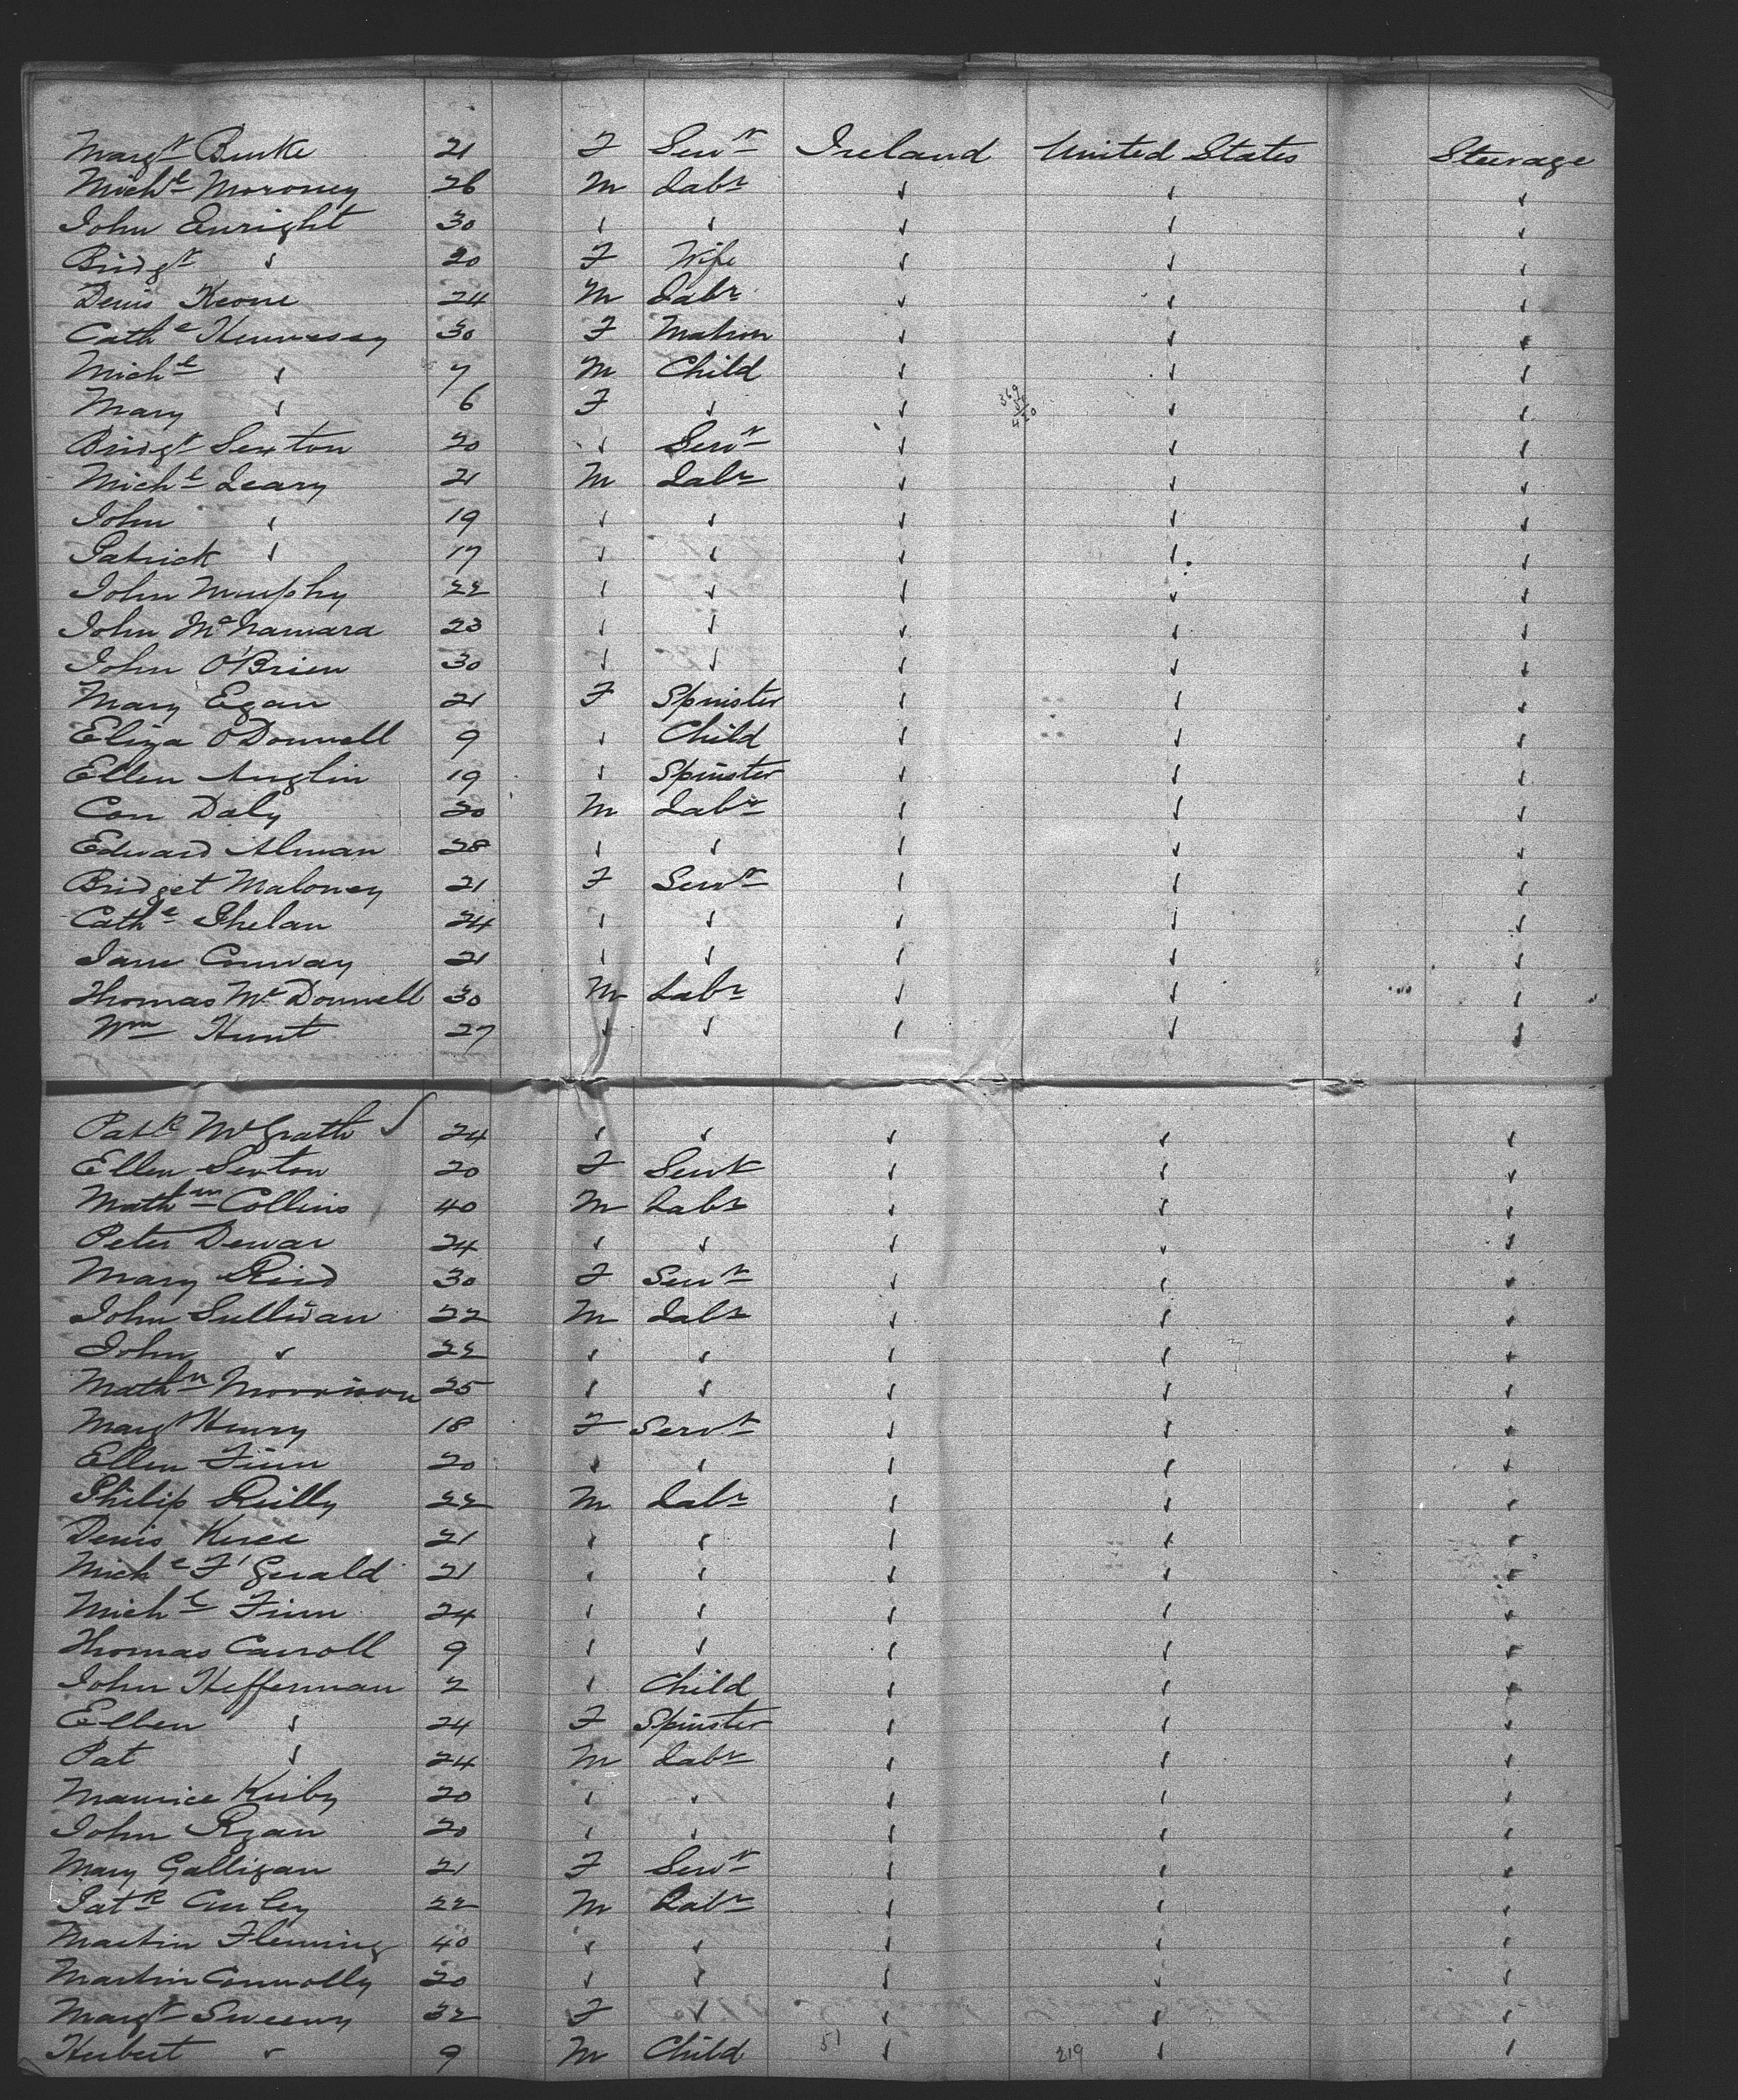 Margt Burke 21 F Servt Ireland United States Steerage
Michl Moroney 26 M Labr ✓ ✓ ✓
John Enright 30 ✓ ✓ ✓ ✓ ✓
Bridgt ✓ 20 F Wife ✓ ✓ ✓
Denis Keone 24 M Labr ✓ ✓ ✓
Cathe Hennessy 30 F Matron ✓ ✓ ✓
Michl ✓ 7 M Child ✓ ✓ ✓
Mary ✓ 6 F ✓ ✓ ✓ ✓
Bridgt Sexton 20 ✓ Servt ✓ ✓ ✓
Michl Leary 21 M Labr ✓ ✓ ✓
John ✓ 19 ✓ ✓ ✓ ✓ ✓
Patrick ✓ 17 ✓ ✓ ✓ ✓ ✓
John Murphy 22 ✓ ✓ ✓ ✓ ✓
John McNamara 23 ✓ ✓ ✓ ✓ ✓
John O'Brien 30 ✓ ✓ ✓ ✓ ✓
Mary Egan 21 F Spinster ✓ ✓ ✓
Eliza O'Donnell 9 ✓ Child ✓ ✓ ✓
Ellen Anglin 19 ✓ Spinster ✓ ✓ ✓
Con Daly 20 M Labr ✓ ✓ ✓
Edward Alman 28 ✓ ✓ ✓ ✓ ✓
Bridget Maloney 21 F Servt ✓ ✓ ✓
Cathe Phelan 24 ✓ ✓ ✓ ✓ ✓
Jane Conway 21 ✓ ✓ ✓ ✓ ✓
Thomas McDonnell 30 M Labr ✓ ✓ ✓
Wm Hunt 27 ✓ ✓ ✓ ✓ ✓
Patk McGrath ✓ 24 ✓ ✓ ✓ ✓ ✓
Ellen Sexton 20 F Servt ✓ ✓ ✓
Mathw Collins 40 M Labr ✓ ✓ ✓
Peter Dewar 24 ✓ ✓ ✓ ✓ ✓
Mary Reid 30 F Servt ✓ ✓ ✓
John Sullivan 22 M Labr ✓ ✓ ✓
John ✓ 22 ✓ ✓ ✓ ✓ ✓
Mathw Morrison 25 ✓ ✓ ✓ ✓ ✓
Margt Henry 18 F Servt ✓ ✓ ✓
Ellen Finn 20 ✓ ✓ ✓ ✓ ✓
Philip Reilly 22 M Labr ✓ ✓ ✓
Denis 21 ✓ ✓ ✓ ✓ ✓
Michl F'Gerald 21 ✓ ✓ ✓ ✓ ✓
Michl Finn 24 ✓ ✓ ✓ ✓ ✓
Thomas Carroll 9 ✓ ✓ ✓ ✓ ✓
John Heffernan 2 ✓ Child ✓ ✓ ✓
Ellen ✓ 24 F Spinster ✓ ✓ ✓
Pat ✓ 24 M Labr ✓ ✓ ✓
Maurice Kirby 20 ✓ ✓ ✓ ✓ ✓
John Ryan 20 ✓ ✓ ✓ ✓ ✓
Mary Galligan 21 F Servt ✓ ✓ ✓
Patk Curley 22 M Labr ✓ ✓ ✓
Martin Fleming 40 ✓ ✓ ✓ ✓ ✓
Martin Connolly 20 ✓ ✓ ✓ ✓ ✓
Margt Sweeny 32 F ✓ ✓ ✓ ✓
Herbert ✓ 9 M Child 51 ✓ 219 ✓ ✓